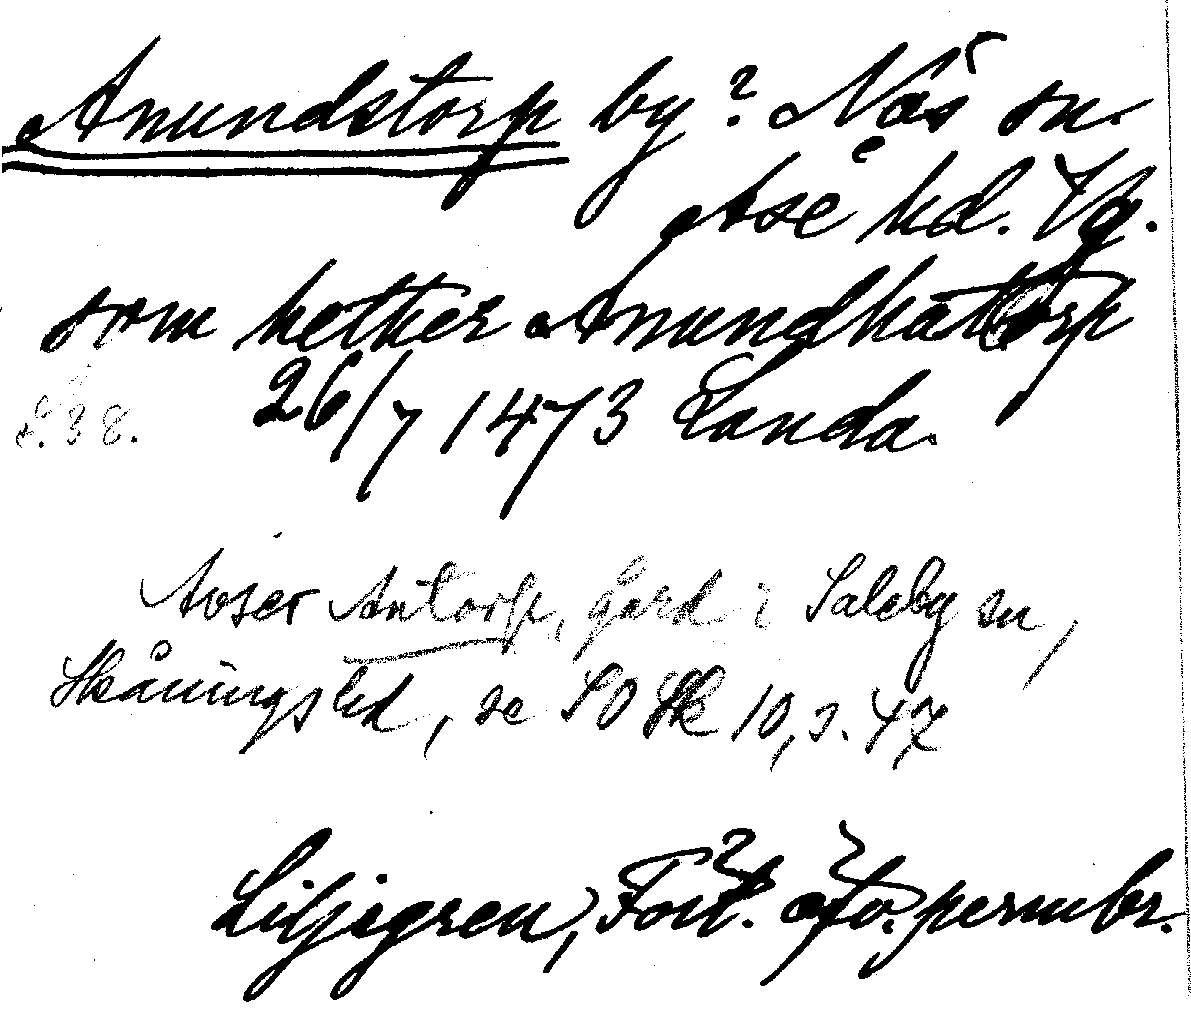 Anundstorp by? Näs sn.
Åse hd. Vg.
som hether Anundhatorp
S. 38. 26/7 1473 Landa.
Avser Antorp, gård i Saleby sn,
Skånings hd, se SOSk 10, s. 47
Liljegren, Fört. öfv. permbr.